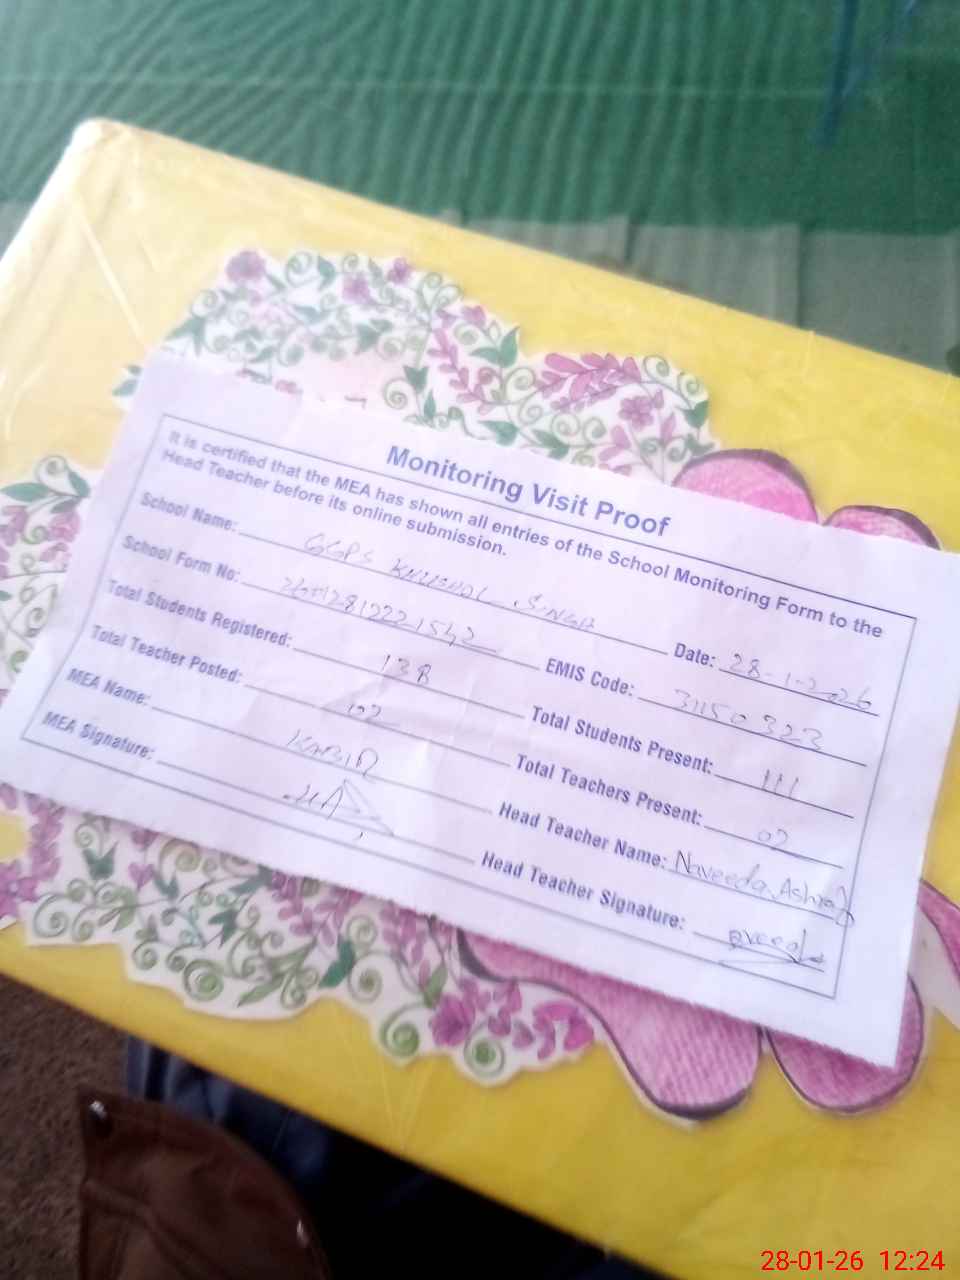 Monitoring Visit Proof
It is certified that the MEA has shown all entries of the School Monitoring Form to the
Head Teacher before its online submission.
School Name: GGPS KHUSHAL SINGH Date: 28-1-2026
School Form No: EMIS Code: 31150323
Total Students Registered: 138 Total Students Present: 111
Total Teacher Posted: 02 Total Teachers Present: 02
MEA Name: KABIR Head Teacher Name: Naveeda Ashraf
MEA Signature: Head Teacher Signature:
28-01-26 12:24